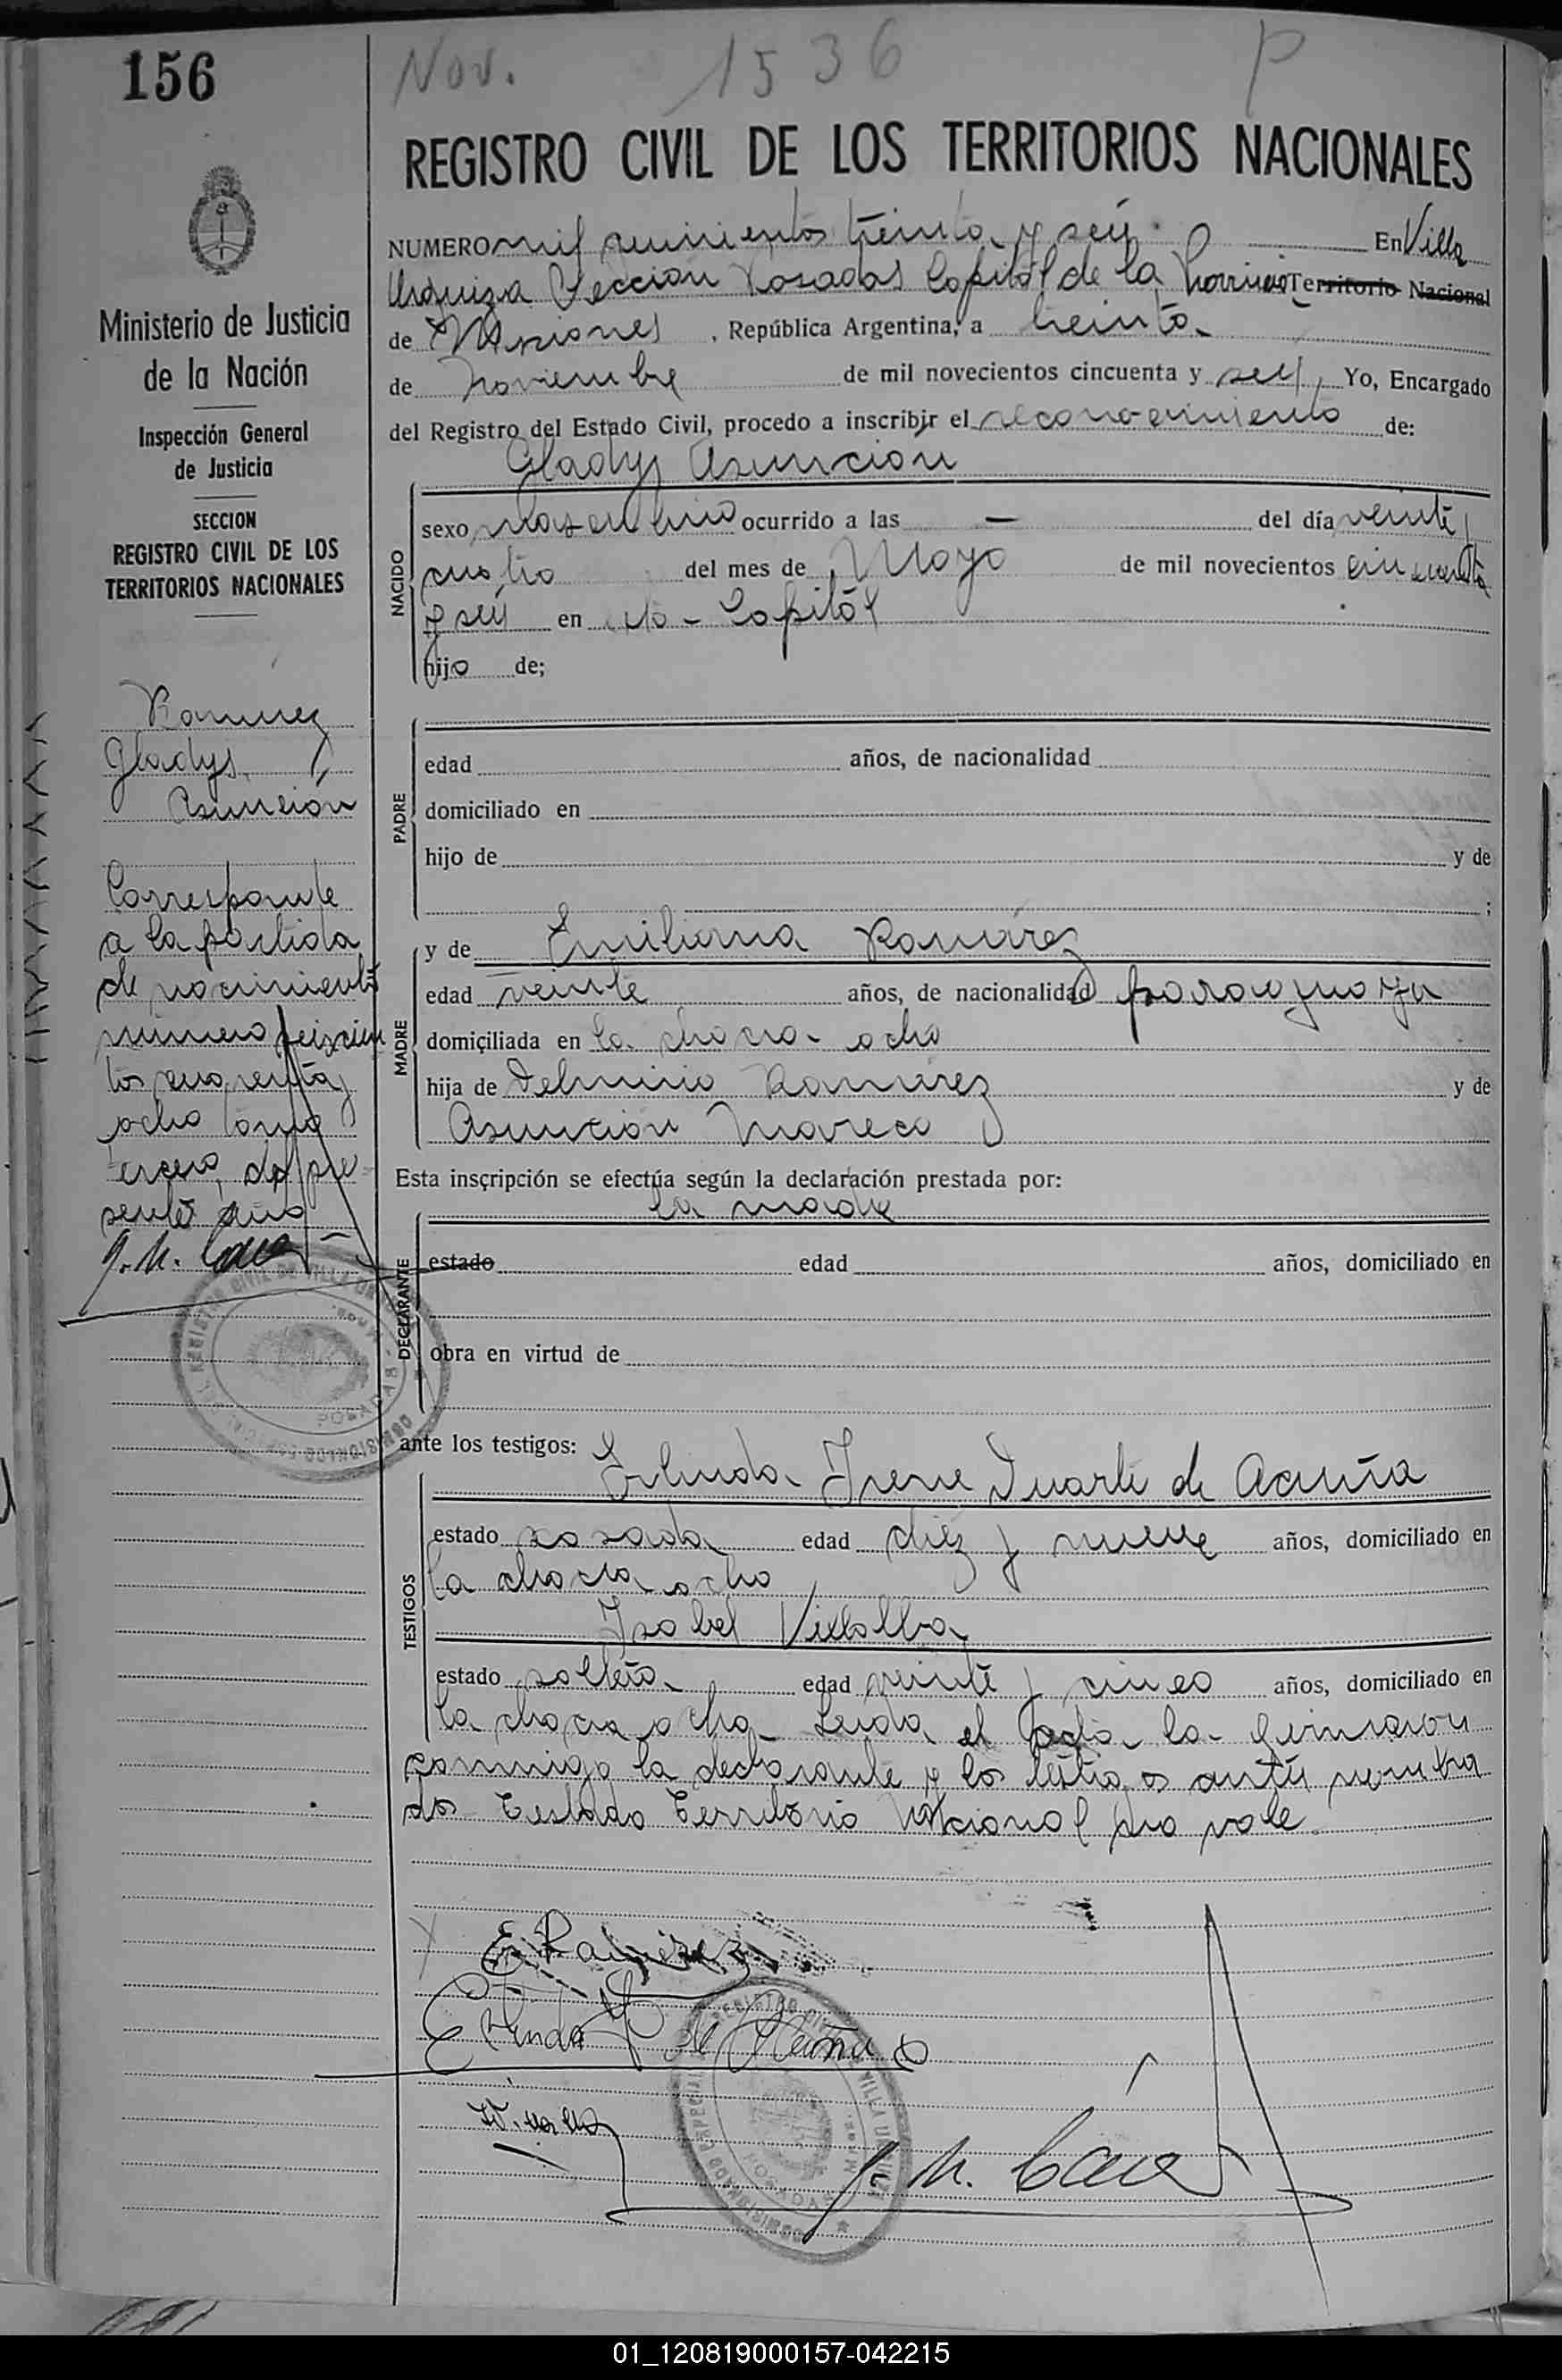 156
Nov. 1536 P
REGISTRO CIVIL DE LOS TERRITORIOS NACIONALES
NUMERO mil quinientos treinta y seis. En Villa
Urquiza Sección Posadas Capital de la Provincia Territorio Nacional
de Misiones, República Argentina, a treinta
de noviembre de mil novecientos cincuenta y seis, Yo, Encargado
del Registro del Estado Civil, procedo a inscribir el reconocimiento de:
Gladys Asunción
NACIDO
sexo masculino ocurrido a las — del día veinte y
cuatro del mes de Mayo de mil novecientos cincuenta
y seis en esta Capital
hijo de;
PADRE
edad años, de nacionalidad
domiciliado en
hijo de y de
;
MADRE
y de Emiliana Ramírez
edad veinte años, de nacionalidad paraguaya
domiciliada en la chacra ocho
hija de Delmirio Ramírez y de
Asunción Mareco
Esta inscripción se efectúa según la declaración prestada por:
la madre
DECLARANTE
estado edad años, domiciliado en
obra en virtud de
ante los testigos:
TESTIGOS
Erlinda Irene Duarte de Acuña
estado casada edad diez y nueve años, domiciliado en
la chacra ocho
Isabel Villalba
estado soltera edad veinte y cinco años, domiciliado en
la chacra ocho. Leida el acta la firmaron
conmigo la declarante y los testigos antes nombra
dos Testado Territorio Nacional no vale.
E Ramirez
Erlinda de Acuña
J. M.
Ministerio de Justicia
de la Nación
Inspección General
de Justicia
SECCION
REGISTRO CIVIL DE LOS
TERRITORIOS NACIONALES
Ramirez
Gladys
Asunción
Corresponde
a la partida
de nacimiento
número seiscien
tos cuarenta y
ocho tomo
tercero del pre
sente año
J. M.
POSADAS
01_120819000157-042215